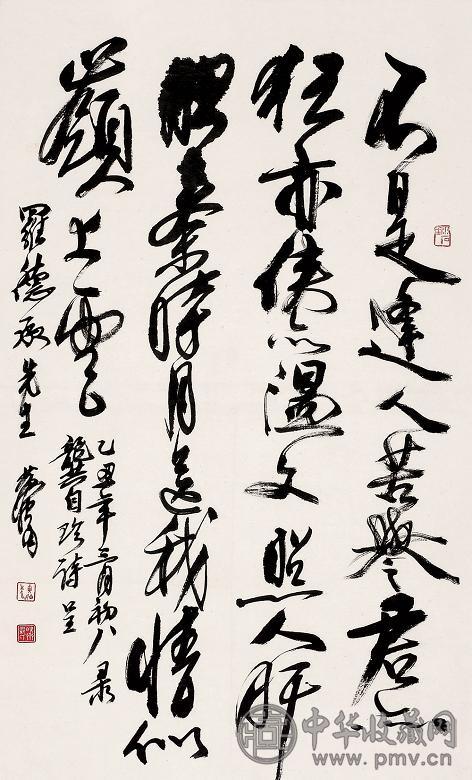 不是逢人苦譽君亦
狂亦俠亦溫文照人肝
膽秦時月送我情似
嶺上雲
乙丑年三月初八录
龔自珍詩呈
羅德承先生
中华收藏网
www.pmv.cn